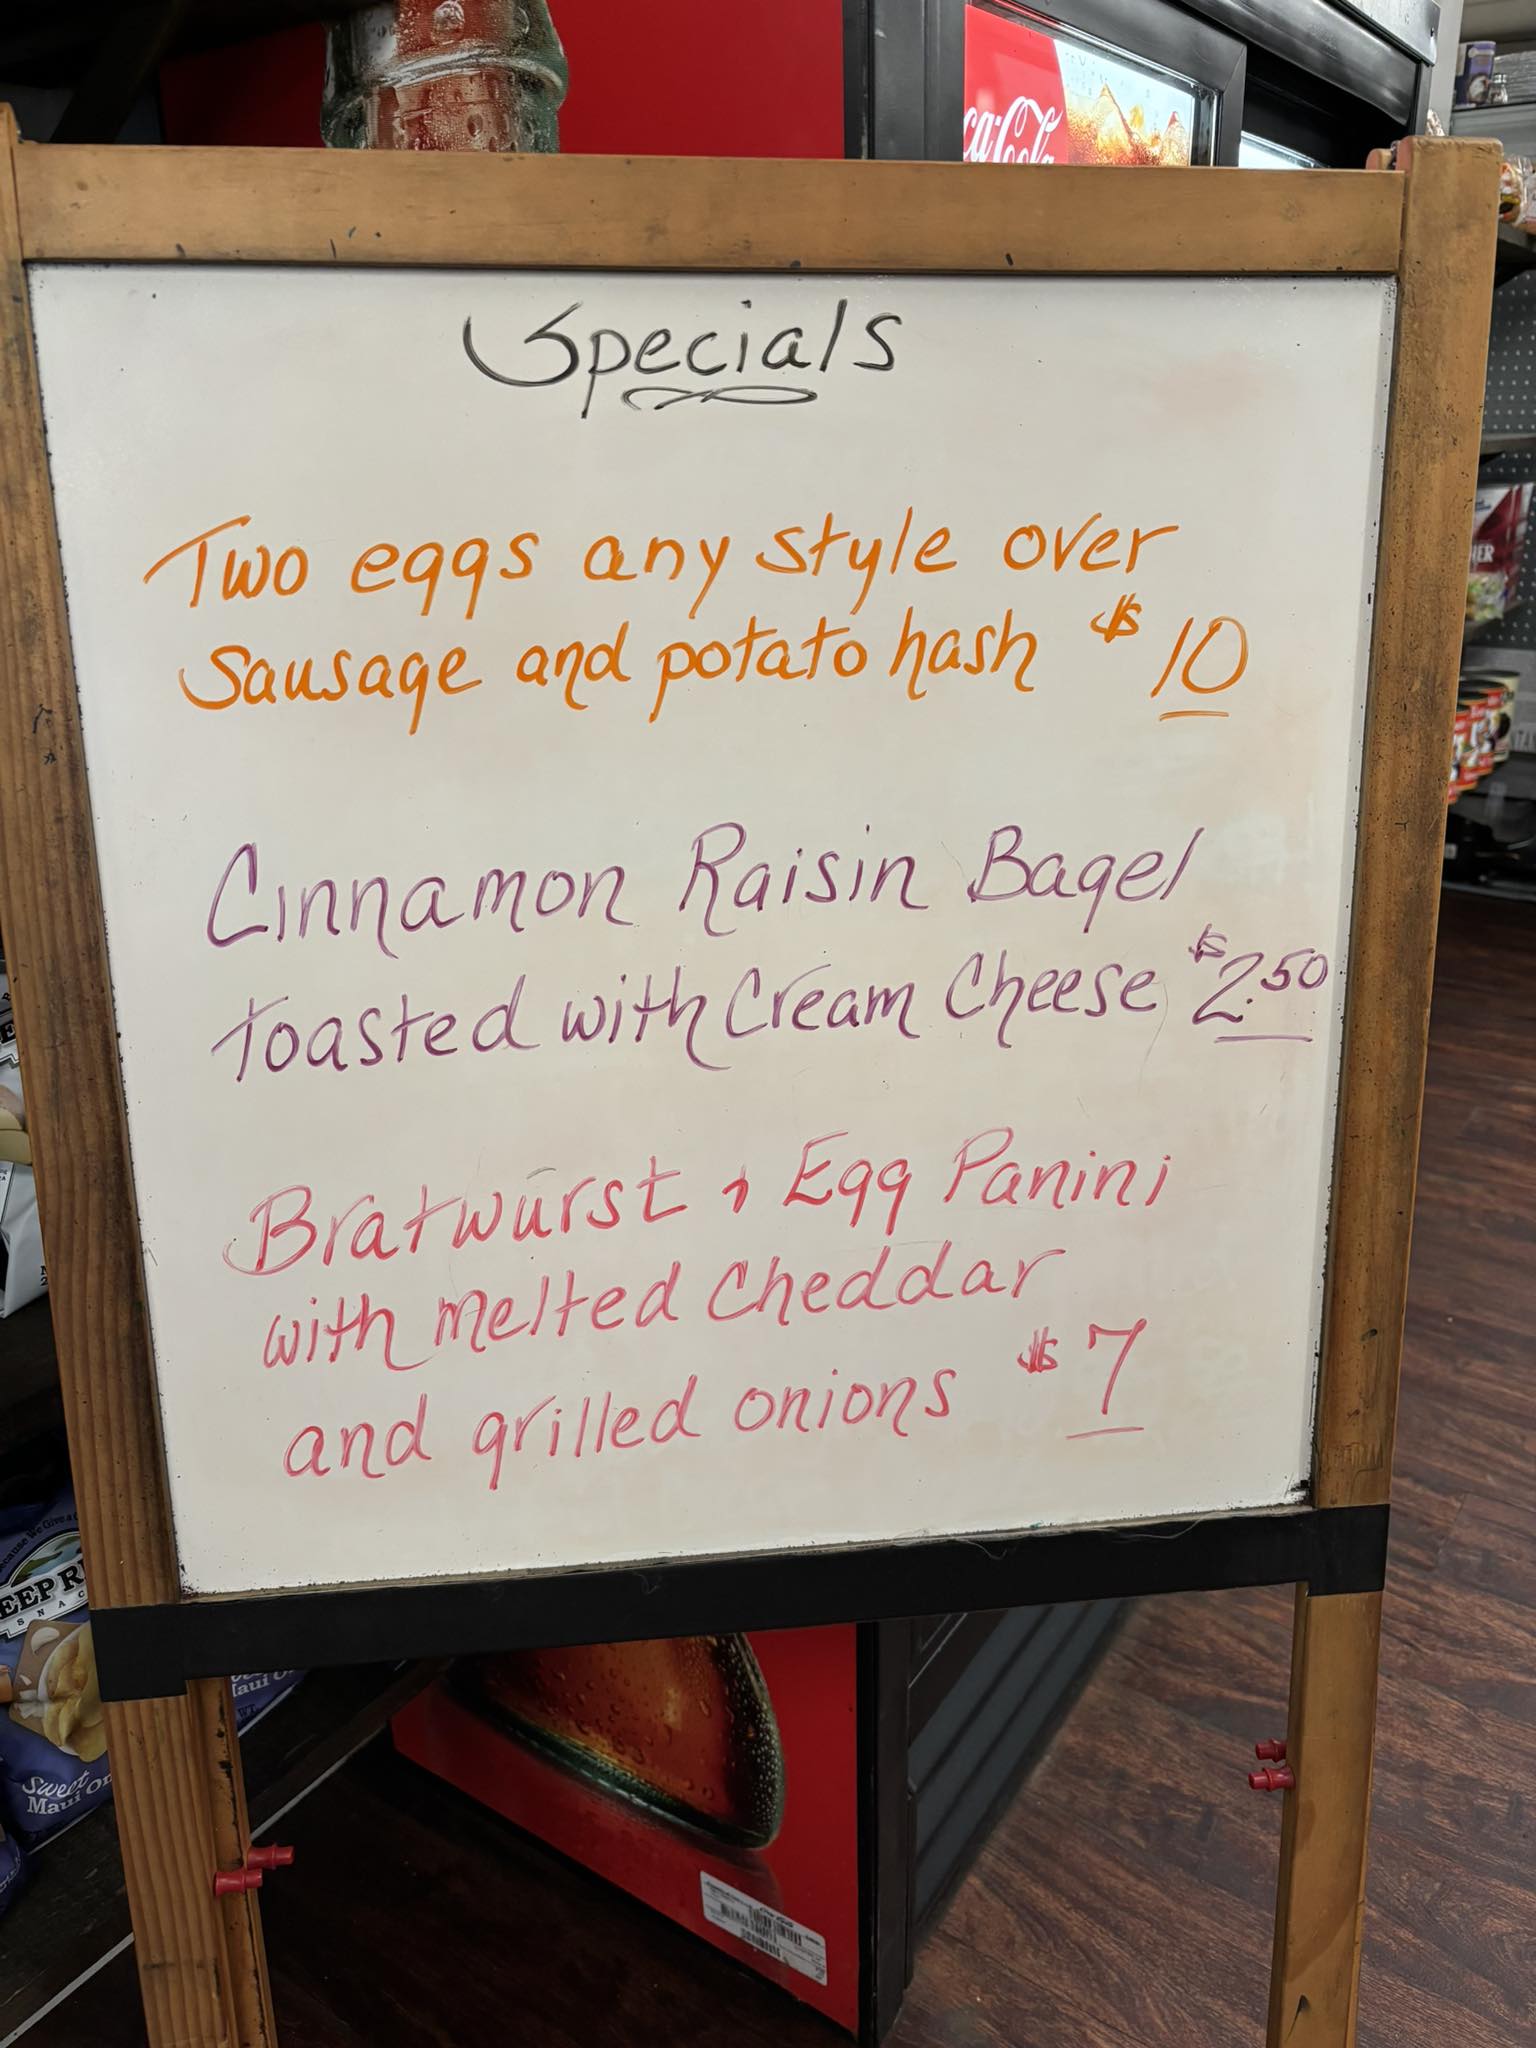 Coca-Cola
Specials
Two eggs any style over
Sausage and potato hash $10
Cinnamon Raisin Bagel
toasted with Cream Cheese $2.50
Bratwurst, Egg Panini
with melted Cheddar
and grilled onions $7
Because We Give a
DEEP R
SNAC
Sweet
Maui On
Maui O